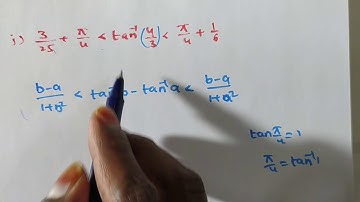 i) 3/25 + π/4 < tan⁻¹(4/3) < π/4 + 1/6
b-a/1+b² < tan⁻¹b - tan⁻¹a < b-a/1+a²
tan π/4 = 1
π/4 = tan⁻¹1